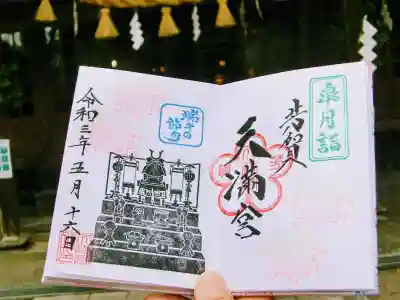 皐月詣
天満宮
端午の
節句
令和三年五月十六日